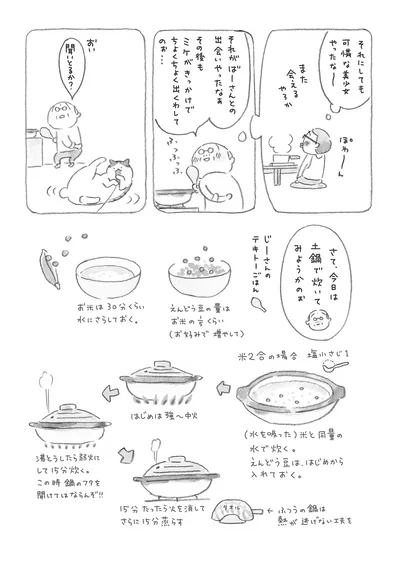 それにしても
可憐な美少女
やったな〜
また
会えるやろか
ぽわーん
それがばーさんとの
出会いやったなぁ
その後も
ミケがきっかけで
ちょくちょく出くわして
のぉ…
ふっふっふ
おい
聞いとるか?
さて、今日は
土鍋で炊いて
みようかのぉ
じーさんの
テキトーごはん
えんどう豆の量は
お米の
くらい
(お好みで増やして)
お米は30分くらい
水にさらしておく。
米2合の場合 塩小さじ1
(水を吸った)米と同量の
水で炊く。
えんどう豆は、はじめから
入れておく。
はじめは強〜中火
沸とうしたら弱火に
して15分炊く。
この時鍋のフタを
開けてはならんぞ!!
15分たったら火を消して
さらに15分蒸らす
タオル
ふつうの鍋は
熱が逃げない工夫を